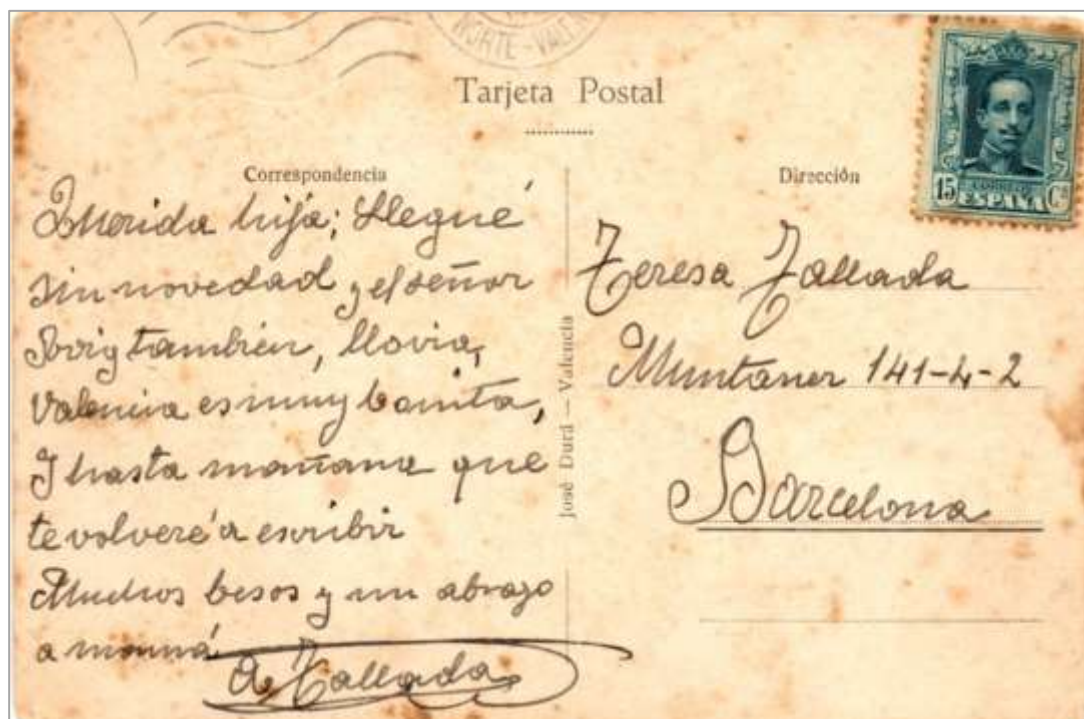 NORTE-VALEN
Tarjeta Postal
Correspondencia
Querida hija; Llegué
sin novedad y el señor
también, llovia,
Valencia es muy bonita,
Y hasta mañana que
te volveré a escribir
Muchos besos y un abrazo
a mamá
A. Tallada
José Durá – Valencia
Dirección
15 CORREOS Cs
ESPAÑA
Teresa Tallada
Muntaner 141-4-2
Barcelona